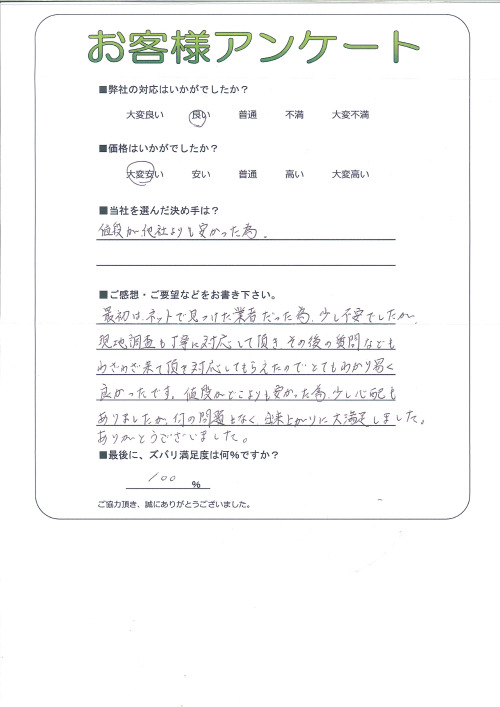 お客様アンケート
■弊社の対応はいかがでしたか？
大変良い 良い 普通 不満 大変不満
■価格はいかがでしたか？
大変安い 安い 普通 高い 大変高い
■当社を選んだ決め手は？
値段が他社よりも安かった為。
■ご感想・ご要望などをお書き下さい。
最初は、ネットで見つけた業者だった為、少し不安でしたが、
現地調査も丁寧に対応して頂き、その後の質問なども
わざわざ来て頂き対応してもらえたのでとてもわかり易く
良かったです。値段がどこよりも安かった為、少し心配も
ありましたが、何の問題もなく、出来上がりに大満足しました。
ありがとうございました。
■最後に、ズバリ満足度は何%ですか？
100 %
ご協力頂き、誠にありがとうございました。